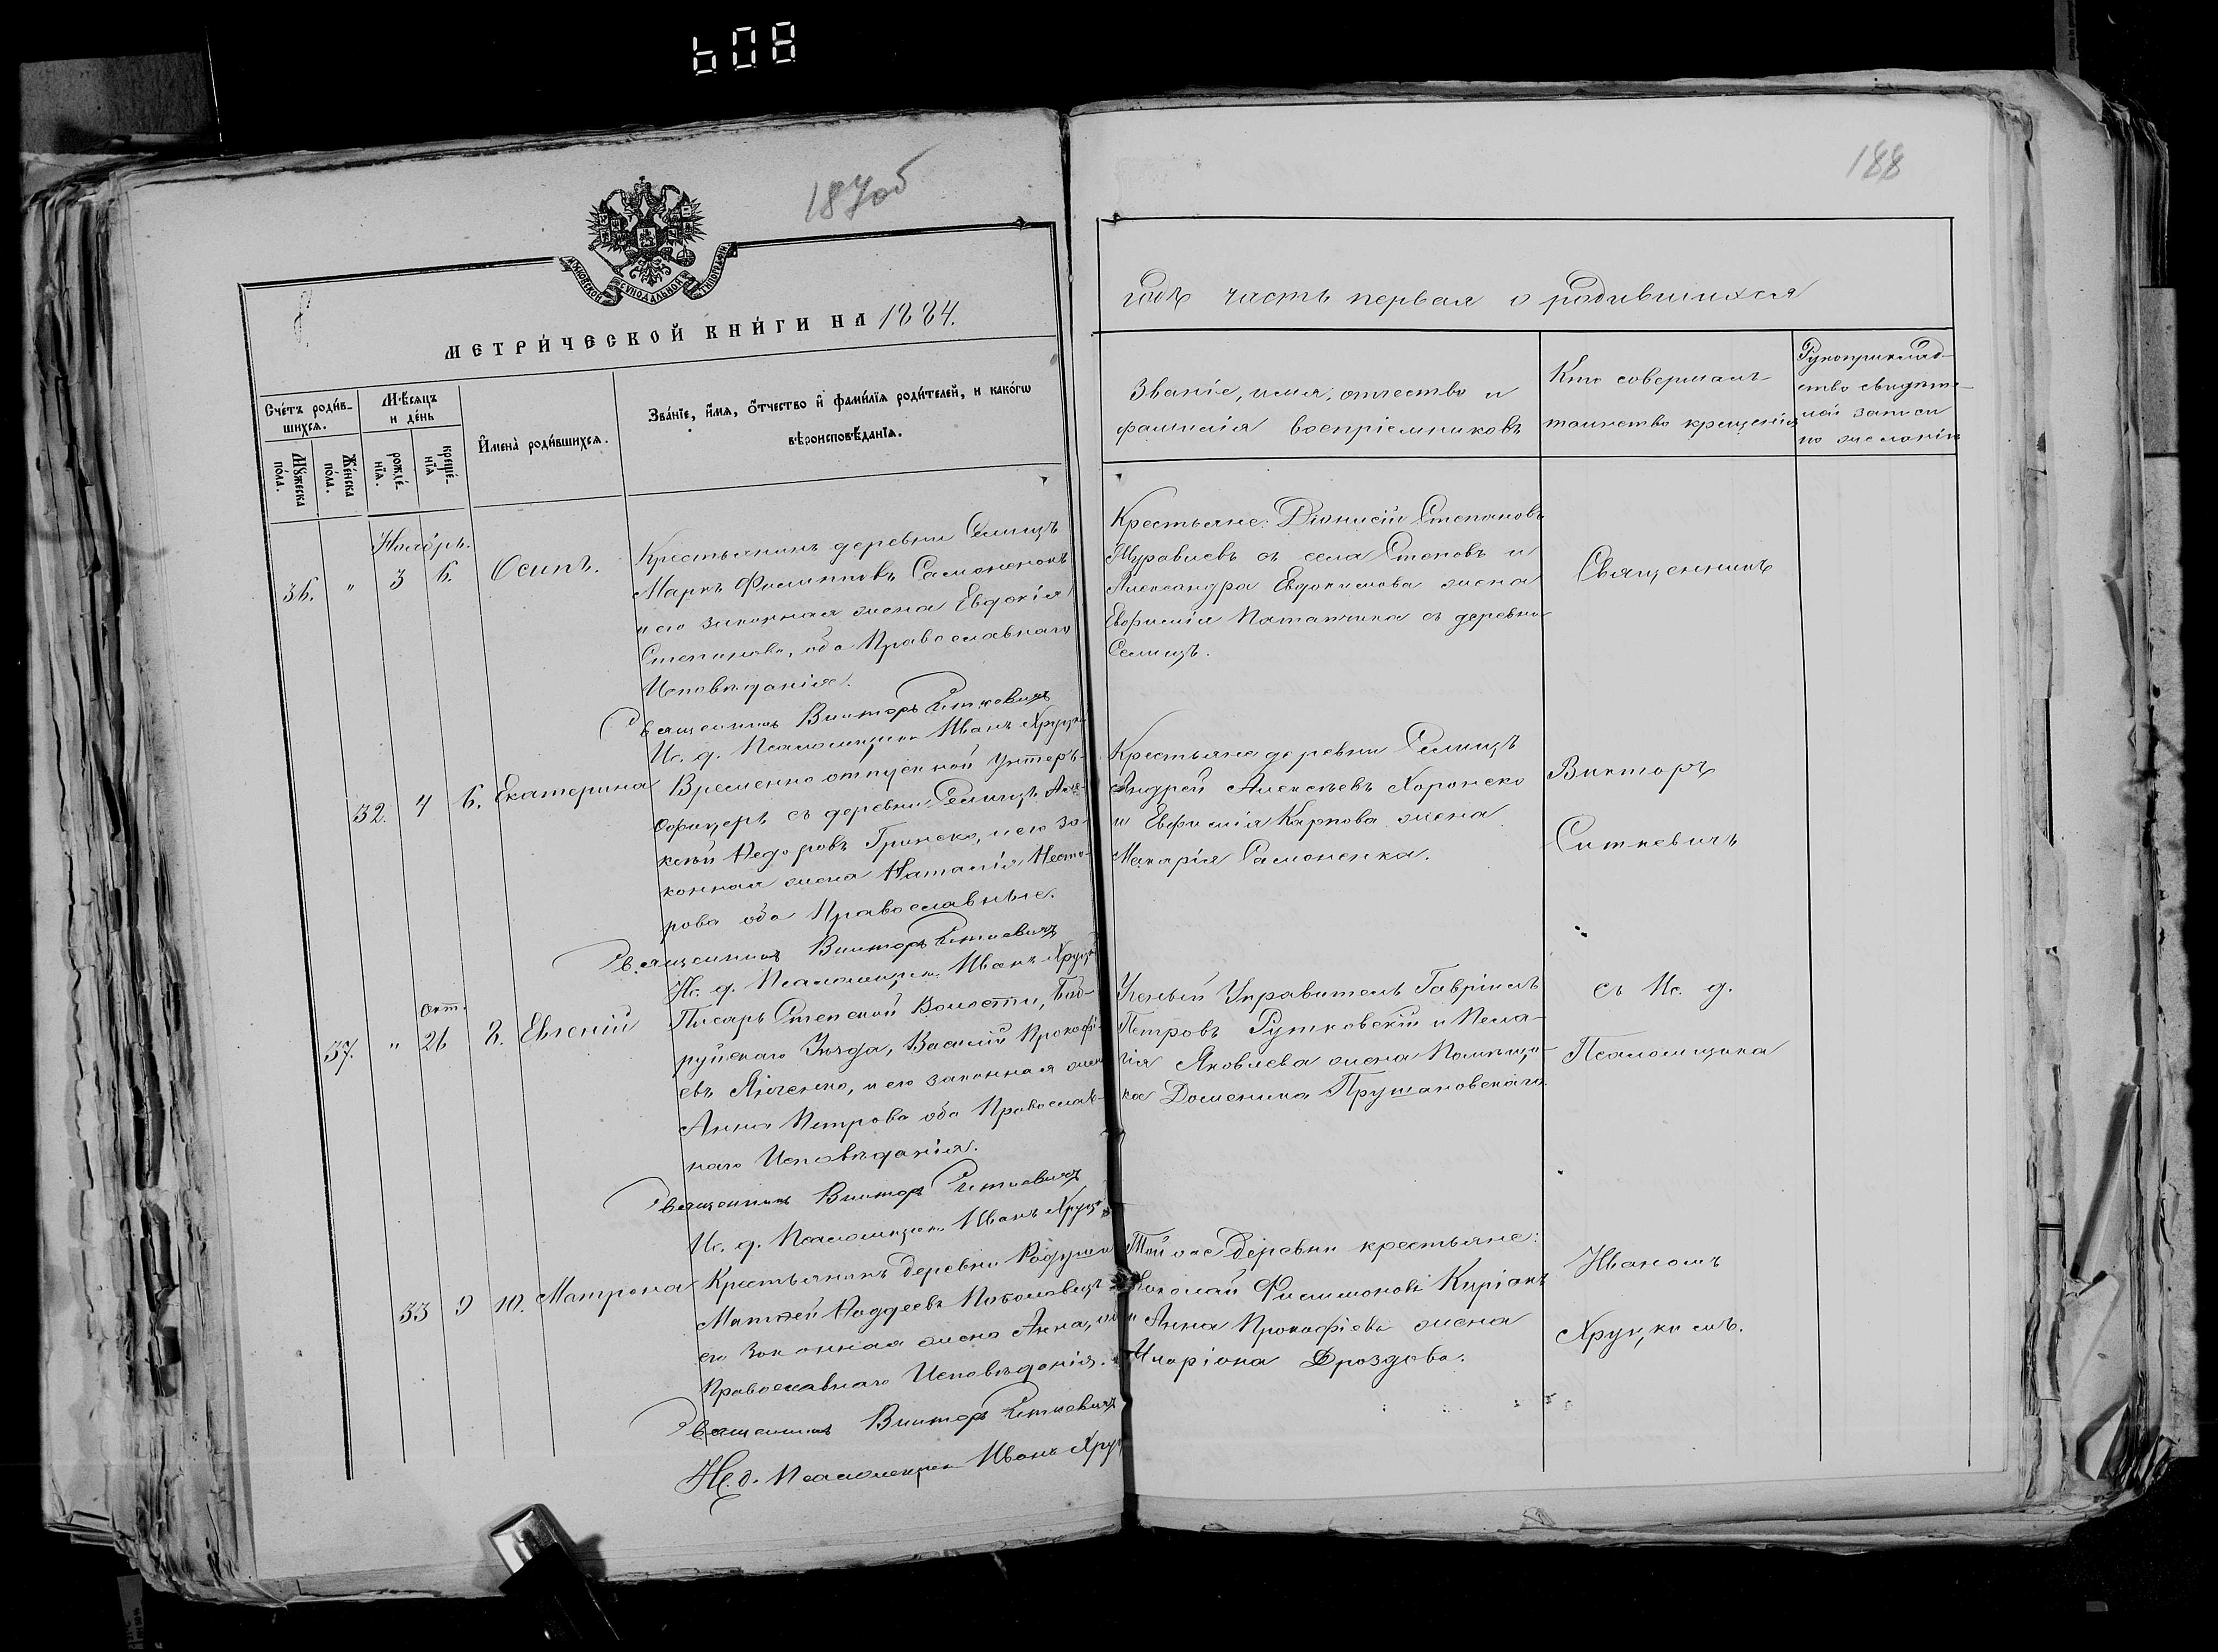 609
187об
188
МОСКОВСКОЙ СѴНОДАЛЬНОЙ ТИПОГРАФІИ
МЕТРИ́ЧЕСКОЙ КНИ́ГИ НА 1884.
годъ часть первая о родившихся
Сче́тъ роди́в-
шихсѧ.
Мꙋ́жеска
по́ла.
Же́нска
по́ла.
Мѣ́сѧцъ
и де́нь
рожде́-
нїѧ.
креще́-
нїѧ
И҆мена̀ роди́вшихсѧ.
Зва́нїе, и҆́мѧ, ѻ҆́тчество и҆ фами́лїѧ роди́телей, и како́гѡ
вѣроисповѣ́данїѧ.
Званіе, имя, отчество и
фамилія воспріемниковъ
Кто совершалъ
таинство крещенія
Рукоприклад-
ство свидѣте-
лей записи
по желанію
Ноябрь.
36. " 3 6. Осипъ.
Крестьянинъ деревни Селищъ
Маркъ Филиповъ Самоненокъ
и его законная жена Евдокія
Степанова, оба Православнаго
Исповѣданія.
Священникъ Викторъ Ситкевичъ
Ис. д. Псаломщика Иванъ Хруцкі
Крестьяне: Діонисій Степановъ
Муравьевъ съ села Степовъ и
Александра Евдокимова жена
Евфимія Потапчика съ деревни
Селищъ.
Священникъ
32. 4 6. Екатерина
Временно отпускной Унтеръ-
офицеръ съ деревни Селищъ Але-
ксѣй Федоровъ Гринько, и его за-
конная жена Наталія Несте-
рова оба Православные.
Священникъ Викторъ Ситкевичъ
Ис. д. Псаломщика Иванъ Хруцкі
Крестьяне деревни Селищъ
Андрей Алексѣевъ Хоронеко
и Евфимія Карпова жена
Макарія Самоненка.
Викторъ
Ситкевичъ
Окт.
37. " 26 8. Евгеній
Писарь Степской Волости, Боб-
руйскаго Уѣзда, Василій Прокофі-
евъ Яченко, и его законная жена
Анна Петрова оба Православ-
наго Исповѣданія.
Священникъ Викторъ Ситкевичъ
Ис. д. Псаломщика Иванъ Хруцкі
Управитель Гавріилъ
Петровъ Рутковскій и Пела-
гія Яковлева жена Помѣщи-
ка Доминика Прушановскаго
съ Ис. д.
Псаломщика
33 9 10. Матрона
Крестьянинъ деревни Радуши
Матѳей Фаддеевъ
его законная жена Анна, оба
Православнаго Исповѣданія.
Священникъ Викторъ Ситкевичъ
Ис. д. Псаломщика Иванъ Хруц
Той же деревни крестьяне:
Николай Филимоновъ Киріакъ
и Анна Прокофіева жена
Иларіона Дроздова.
Иваномъ
Хруцкимъ.